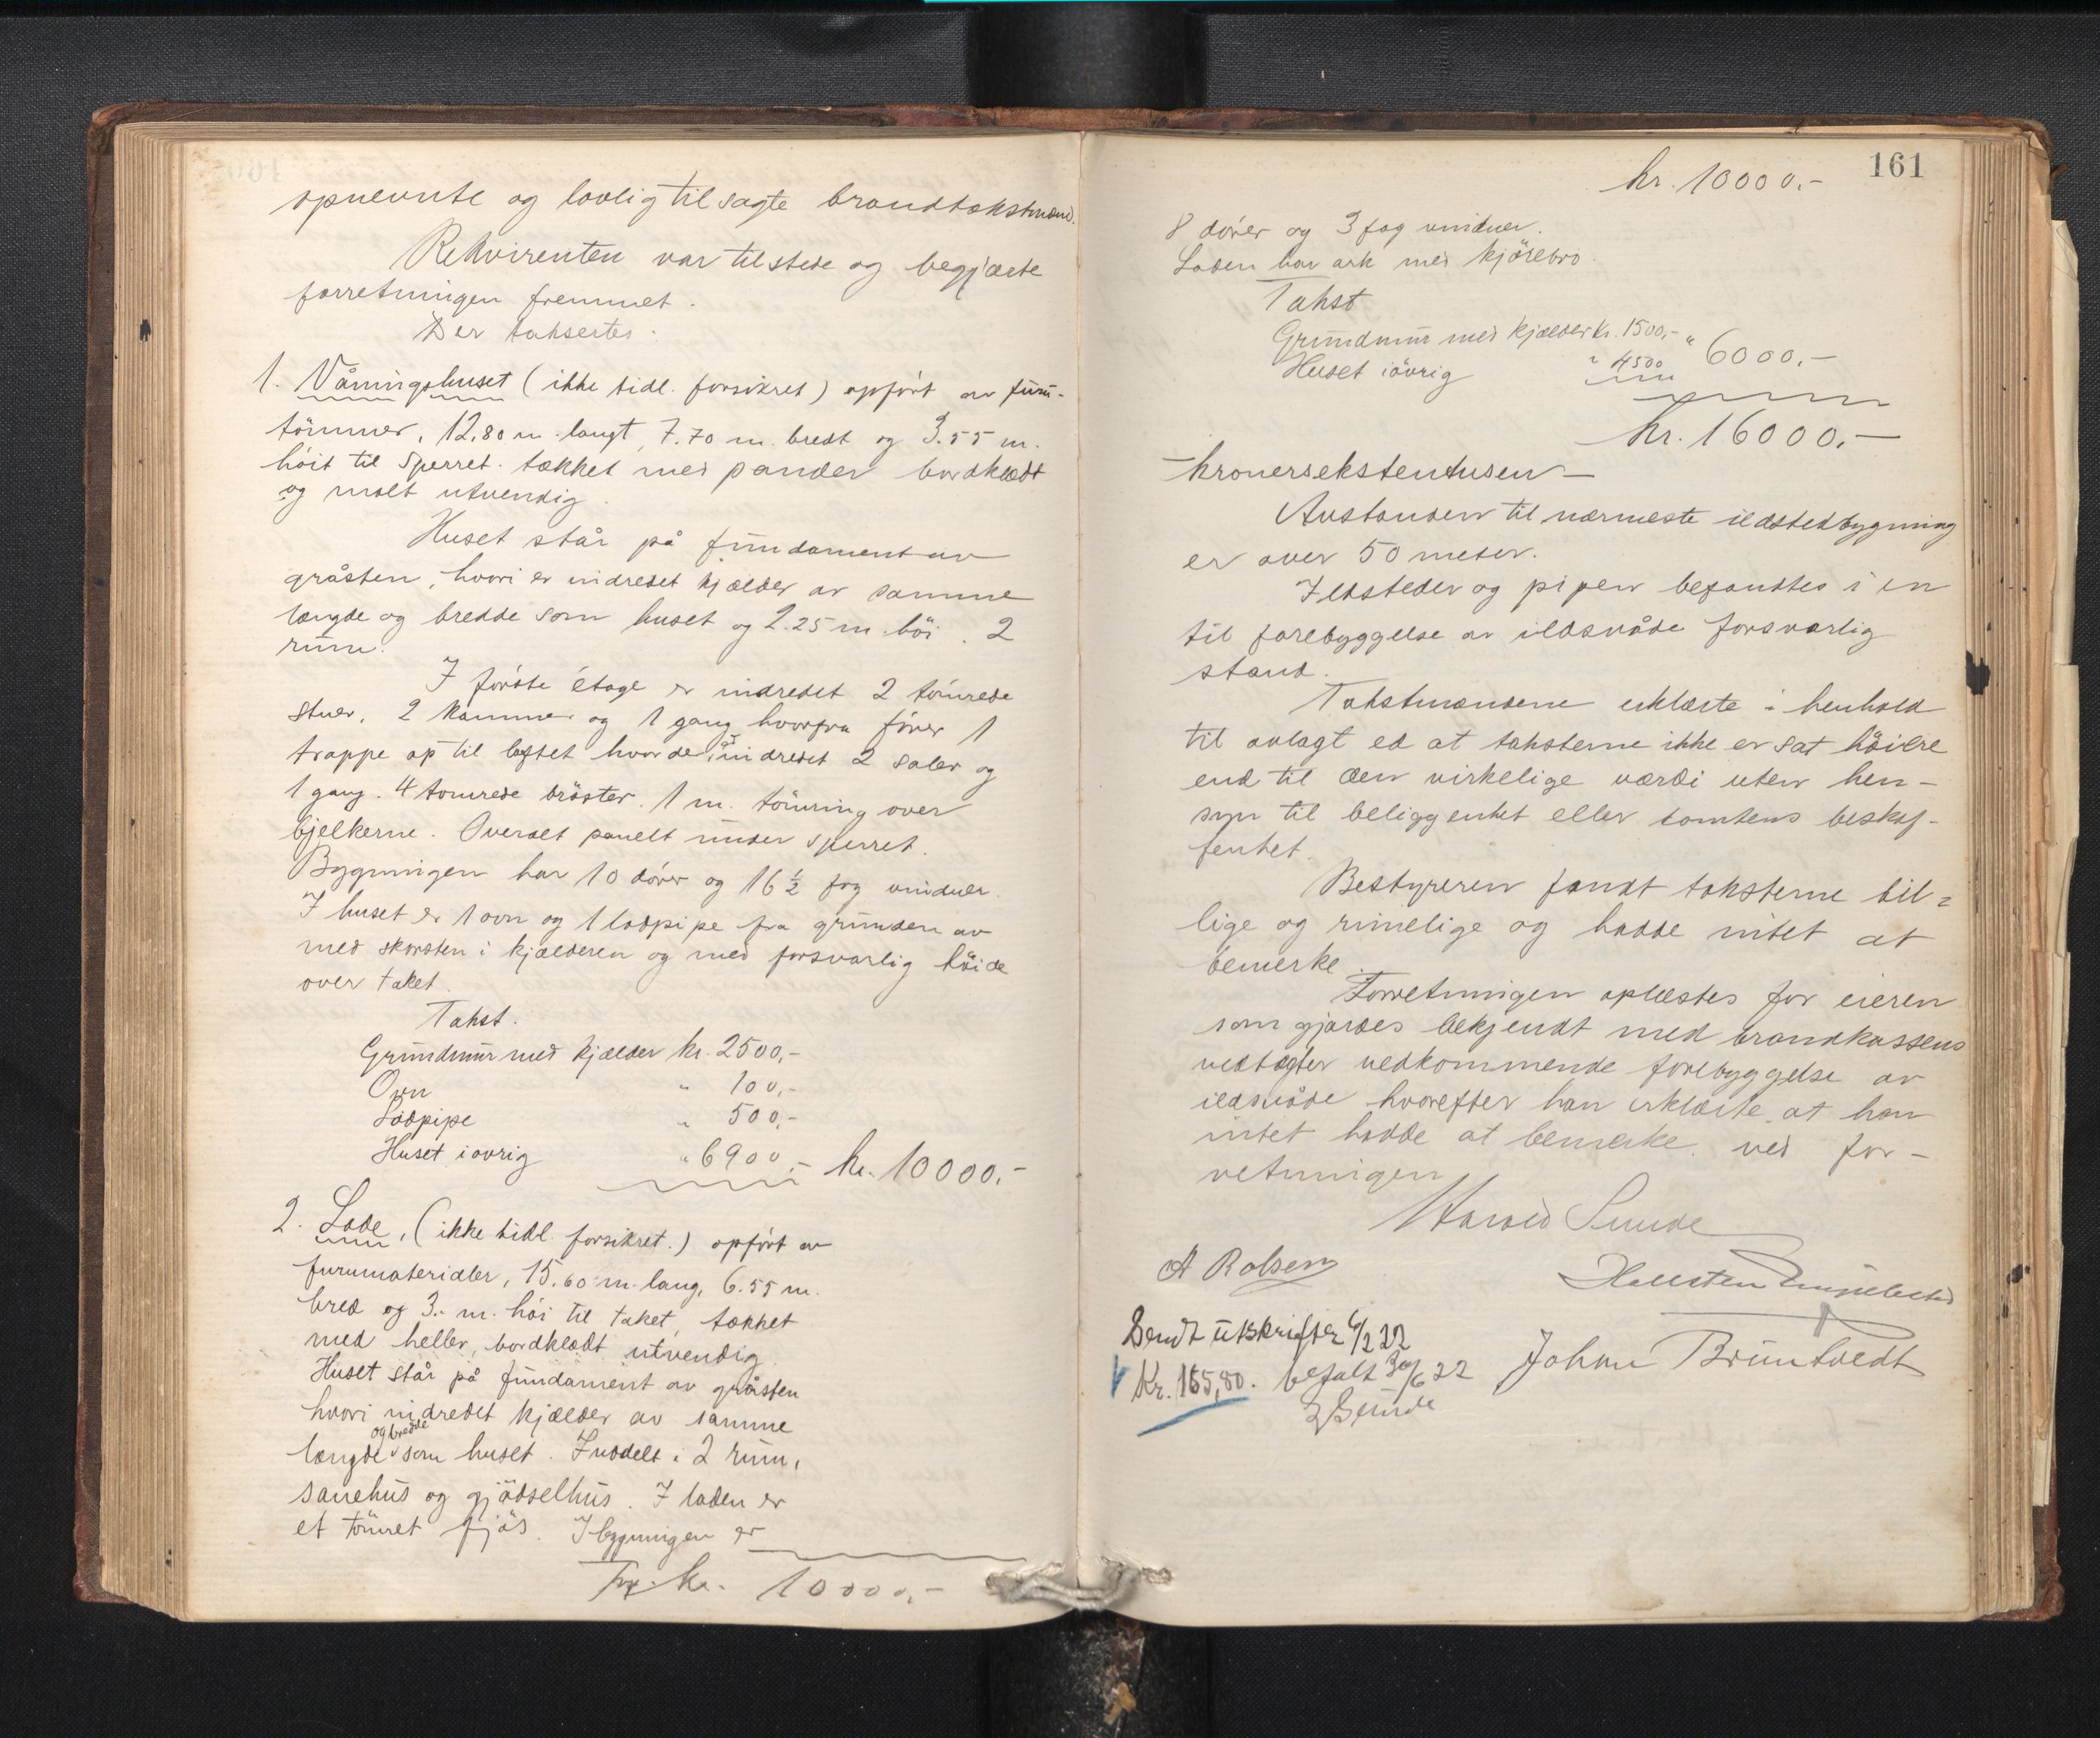 opnevnte og lovlig tilsagte brandtakstmænd.
Rekvirenten var tilstede og begjærte
forretningen fremmet.
Der taksertes.
1. Våningshuset (ikke tidl. forsikret) opført av furu-
tömmer, 12,80 m. langt, 7.70 m. bredt og 3.55 m.
höit til sperret. tækket med pander bordklædt
og malt utvendig.
Huset står på fundament av
gråsten, hvori er indredet kjælder av samme
længde og bredde som huset og 2.25 m. höi. 2
rum.
I förste étage er indredet 2 tömrede
stuer, 2 kammer og 1 gang hvorfra förer 1
trappe op til loftet hvor de er indredet 2 saler og
1 gang. 4 tomrede bröster. 1 m. tömring over
bjelkerne. Overalt panelt under sperret.
Bygningen har 10 dörer og 16 ½ fag vinduer.
I huset er 1 ovn og 1 lodpipe fra grunden av
med skorsten i kjælderen og med forsvarlig höide
over taket.
Takst.
Grundmur med kjælder kr. 2500,-
Ovn " 100,-
Lodpipe " 500,-
Huset iovrig " 6900,- kr. 10000,-
2. Lade, (ikke tidl. forsikret.) opført av
furumaterialer, 15.60 m. lang, 6.55 m.
bred og 3.- m. höi til taket, tækket
med heller, bordklædt utvendig.
Huset står på fundament av gråsten
hvori indredet kjælder av samme
og bredde
længde som huset. Inddelt i 2 rum,
sauehus og gjödselhus. I laden er
et tömret fjös. I bygningen er
Trp. kr. 10000,-
161
kr. 10000.-
8 dörer og 3 fag vinduer.
Laden har ark med kjörebro.
Takst
Grundmur med kjælder kr. 1500,- " 6000,-
Huset iövrig " 4500
kr. 16000,-
- kroner sekstentusen -
Avstanden til nærmeste ildstedbygning
er over 50 meter.
Ildsteder og piper befandtes i en
til forebyggelse av ildsvåde forsvarlig
stand.
Takstmændene erklærte i henhold
til avlagt ed at taksterne ikke er sat höiere
end til den virkelige værdi uten hen-
syn til beliggenhet eller tomtens beskaf-
fenhet.
Bestyreren fandt taksterne bil-
lige og rimelige og hadde intet at
bemerke.
Forretningen oplæstes for eieren
som gjordes bekjendt med brandkassens
vedtægter vedkommende forebyggelse av
ildsvåde hvorefter han erklærte at han
intet hadde at bemerke ved for-
retningen
Harald Sunde
A Rolsen
Johan Bruntvedt
Sendt utskrifter 6/2 22
Kr. 165,80. betalt 30/6 22
Sunde